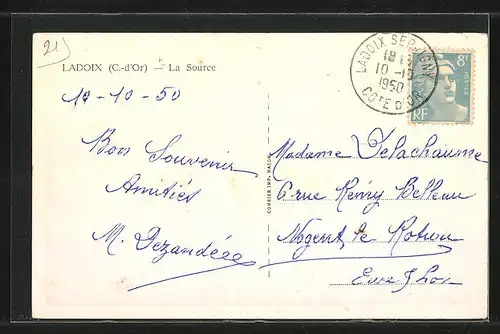 21
LADOIX (C.-d'Or) — La Source
LADOIX SERRIGNY
18 H
10-10
1950
COTE D'OR
8F
RF
10-10-50
Bon Souvenir
Amitiés
M.
COMBIER IMP. MACON
Madame Delachaume
6 rue Rémy Belleau
Nogent le Rotrou
Eure & Loir